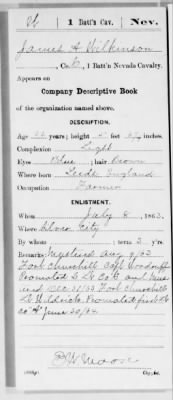 W | 1 Batt'n Cav. | Nev.
James A. Wilkinson
, Co. C, 1 Batt'n Nevada Cavalry.
Appears on
Company Descriptive Book
of the organization named above.
DESCRIPTION.
Age years; height 5 feet inches.
Complexion Light
Eyes Blue ; hair Brown
Where born Leeds England
Occupation Farmer
ENLISTMENT.
When July 8, 1863.
Where Silver City
By whom ; term 3 y'rs.
Remarks: Mustered Aug 9/63
Fort Churchill Capt
Promoted 2 Lt Co C and
Dec 31/63 Fort Churchill
Promoted first Lt
Co "A" June 30/64
Copyist.